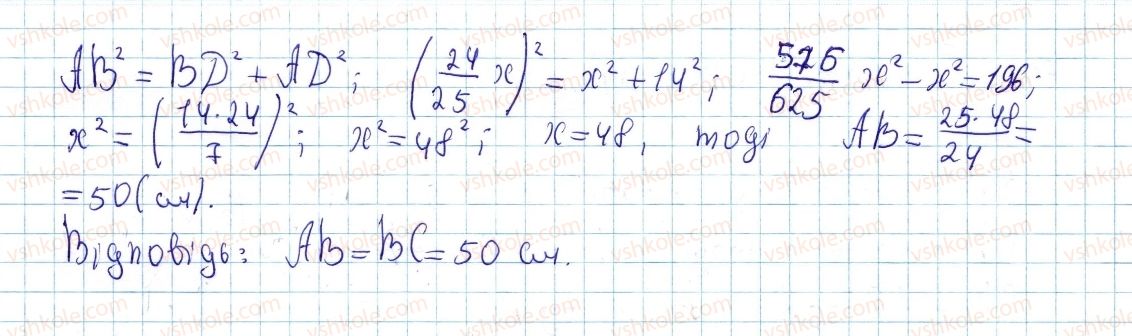 AB² = BD² + AD²; (24/25 x)² = x² + 14²; 576/625 x² - x² = 196;
x² = (14·24/7)²; x² = 48²; x = 48, тоді AB = 25·48/24 =
= 50 (см).
Відповідь: AB = BC = 50 см.